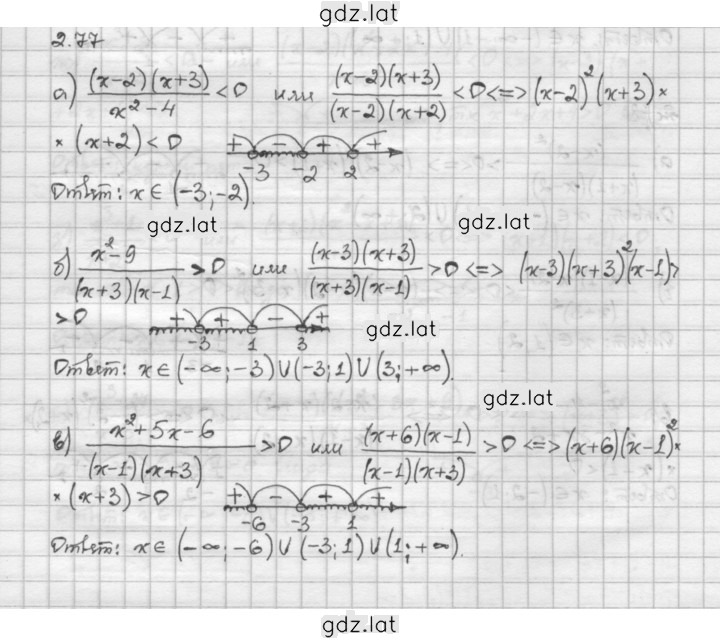 gdz.lat
2.77
а) (x-2)(x+3)/(x²-4) < 0 или (x-2)(x+3)/((x-2)(x+2)) < 0 <=> (x-2)²(x+3)×
×(x+2) < 0 + - + + -3 -2 2
Ответ: x ∈ (-3; -2).
gdz.lat gdz.lat
б) (x²-9)/((x+3)(x-1)) > 0 или (x-3)(x+3)/((x+3)(x-1)) > 0 <=> (x-3)(x+3)²(x-1) >
> 0 + + - + -3 1 3
gdz.lat
Ответ: x ∈ (-∞; -3) ∪ (-3; 1) ∪ (3; +∞).
gdz.lat
в) (x²+5x-6)/((x-1)(x+3)) > 0 или (x+6)(x-1)/((x-1)(x+3)) > 0 <=> (x+6)(x-1)²×
×(x+3) > 0 + - + + -6 -3 1
Ответ: x ∈ (-∞; -6) ∪ (-3; 1) ∪ (1; +∞).
gdz.lat